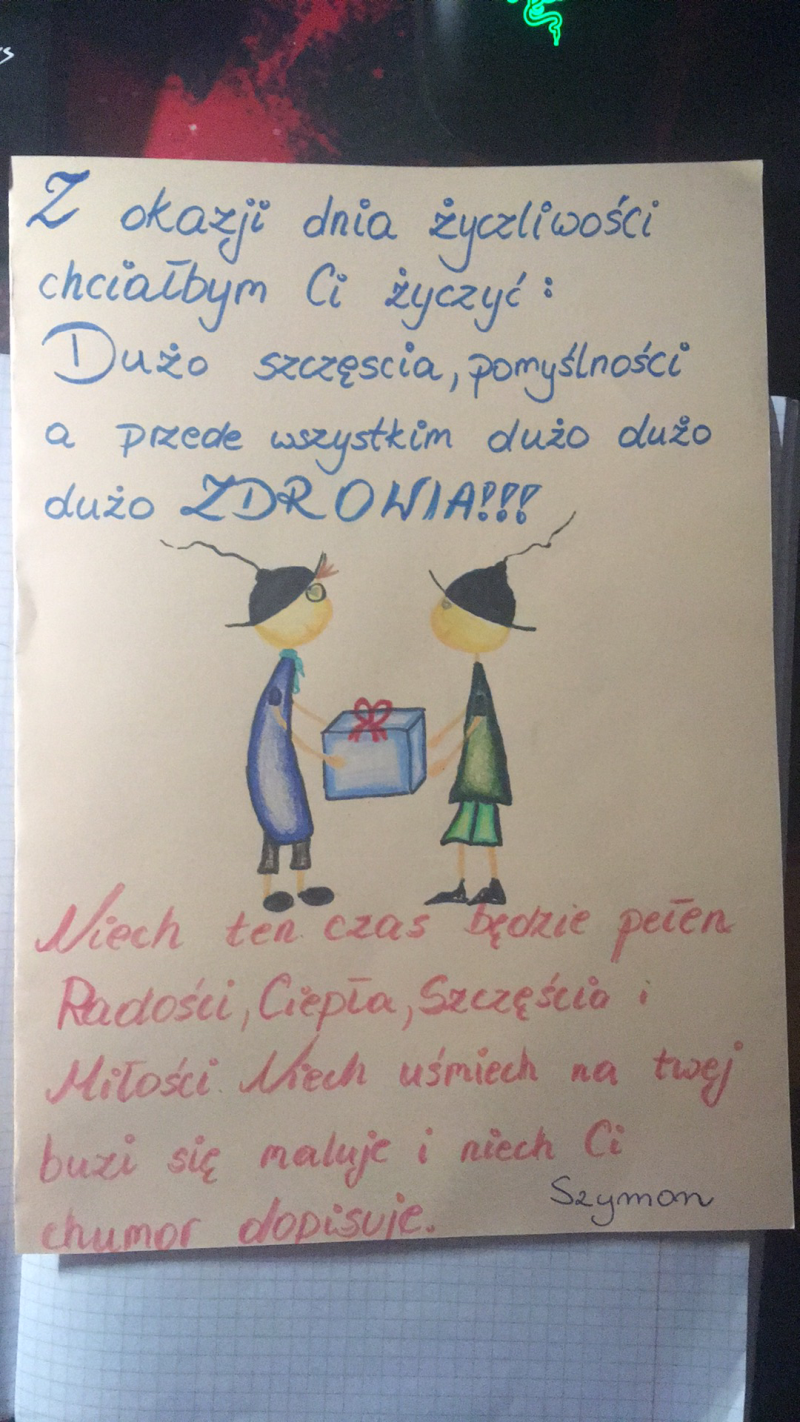 Z okazji dnia życzliwości
chciałbym Ci życzyć:
Dużo szczęscia, pomyślności
a przede wszystkim dużo dużo
dużo ZDROWIA!!!
Niech ten czas będzie pełen
Radości, Ciepła, Szczęścia i
Miłości. Niech uśmiech na twej
buzi się maluje i niech Ci
chumor dopisuje.
Szymon